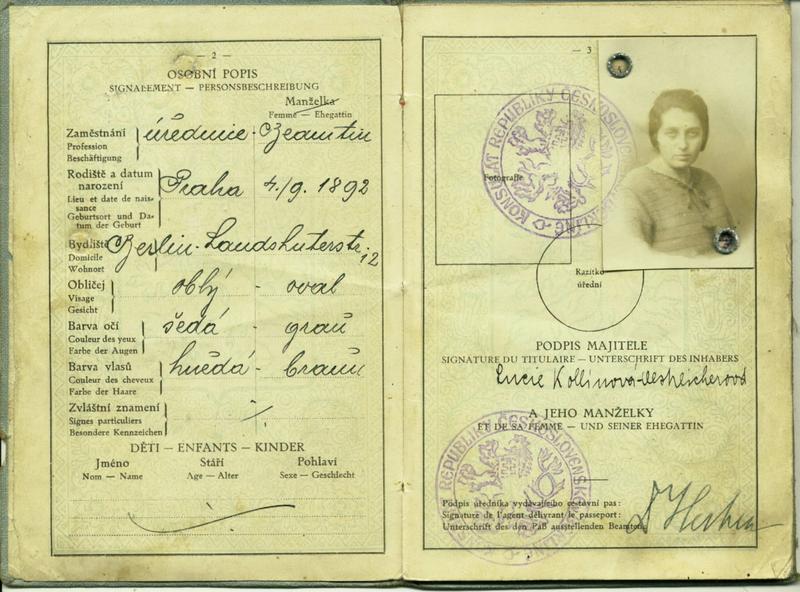 — 2 —
OSOBNÍ POPIS
SIGNALEMENT — PERSONSBESCHREIBUNG
Manželka
Femme — Ehegattin
Zaměstnání
Profession
Beschäftigung
úřednice - Beamtin
Rodiště a datum
narození
Lieu et date de nais-
sance
Geburtsort und Da-
tum der Geburt
Praha 4./9. 1892
Bydliště
Domicile
Wohnort
Berlin - Landshuterstr. 12
Obličej
Visage
Gesicht
oblý - oval
Barva očí
Couleur des yeux
Farbe der Augen
šedá - grau
Barva vlasů
Couleur des cheveux
Farbe der Haare
hnědá - braun
Zvláštní znamení
Signes particuliers
Besondere Kennzeichen
DĚTI — ENFANTS — KINDER
Jméno Stáří Pohlaví
Nom — Name Age — Alter Sexe — Geschlecht
— 3
KONSULÁT REPUBLIKY ČESKOSLOVENSKÉ
Fotografie
Razítko
úřední
PODPIS MAJITELE
SIGNATURE DU TITULAIRE — UNTERSCHRIFT DES INHABERS
Lucie Kollinová
A JEHO MANŽELKY
ET DE SA FEMME — UND SEINER EHEGATTIN
REPUBLIKY ČESKOSLOVENSKÉ
Podpis úředníka vydávajícího cestovní pas:
Signature de l'agent délivrant le passeport:
Unterschrift des den Paß ausstellenden Beamten: